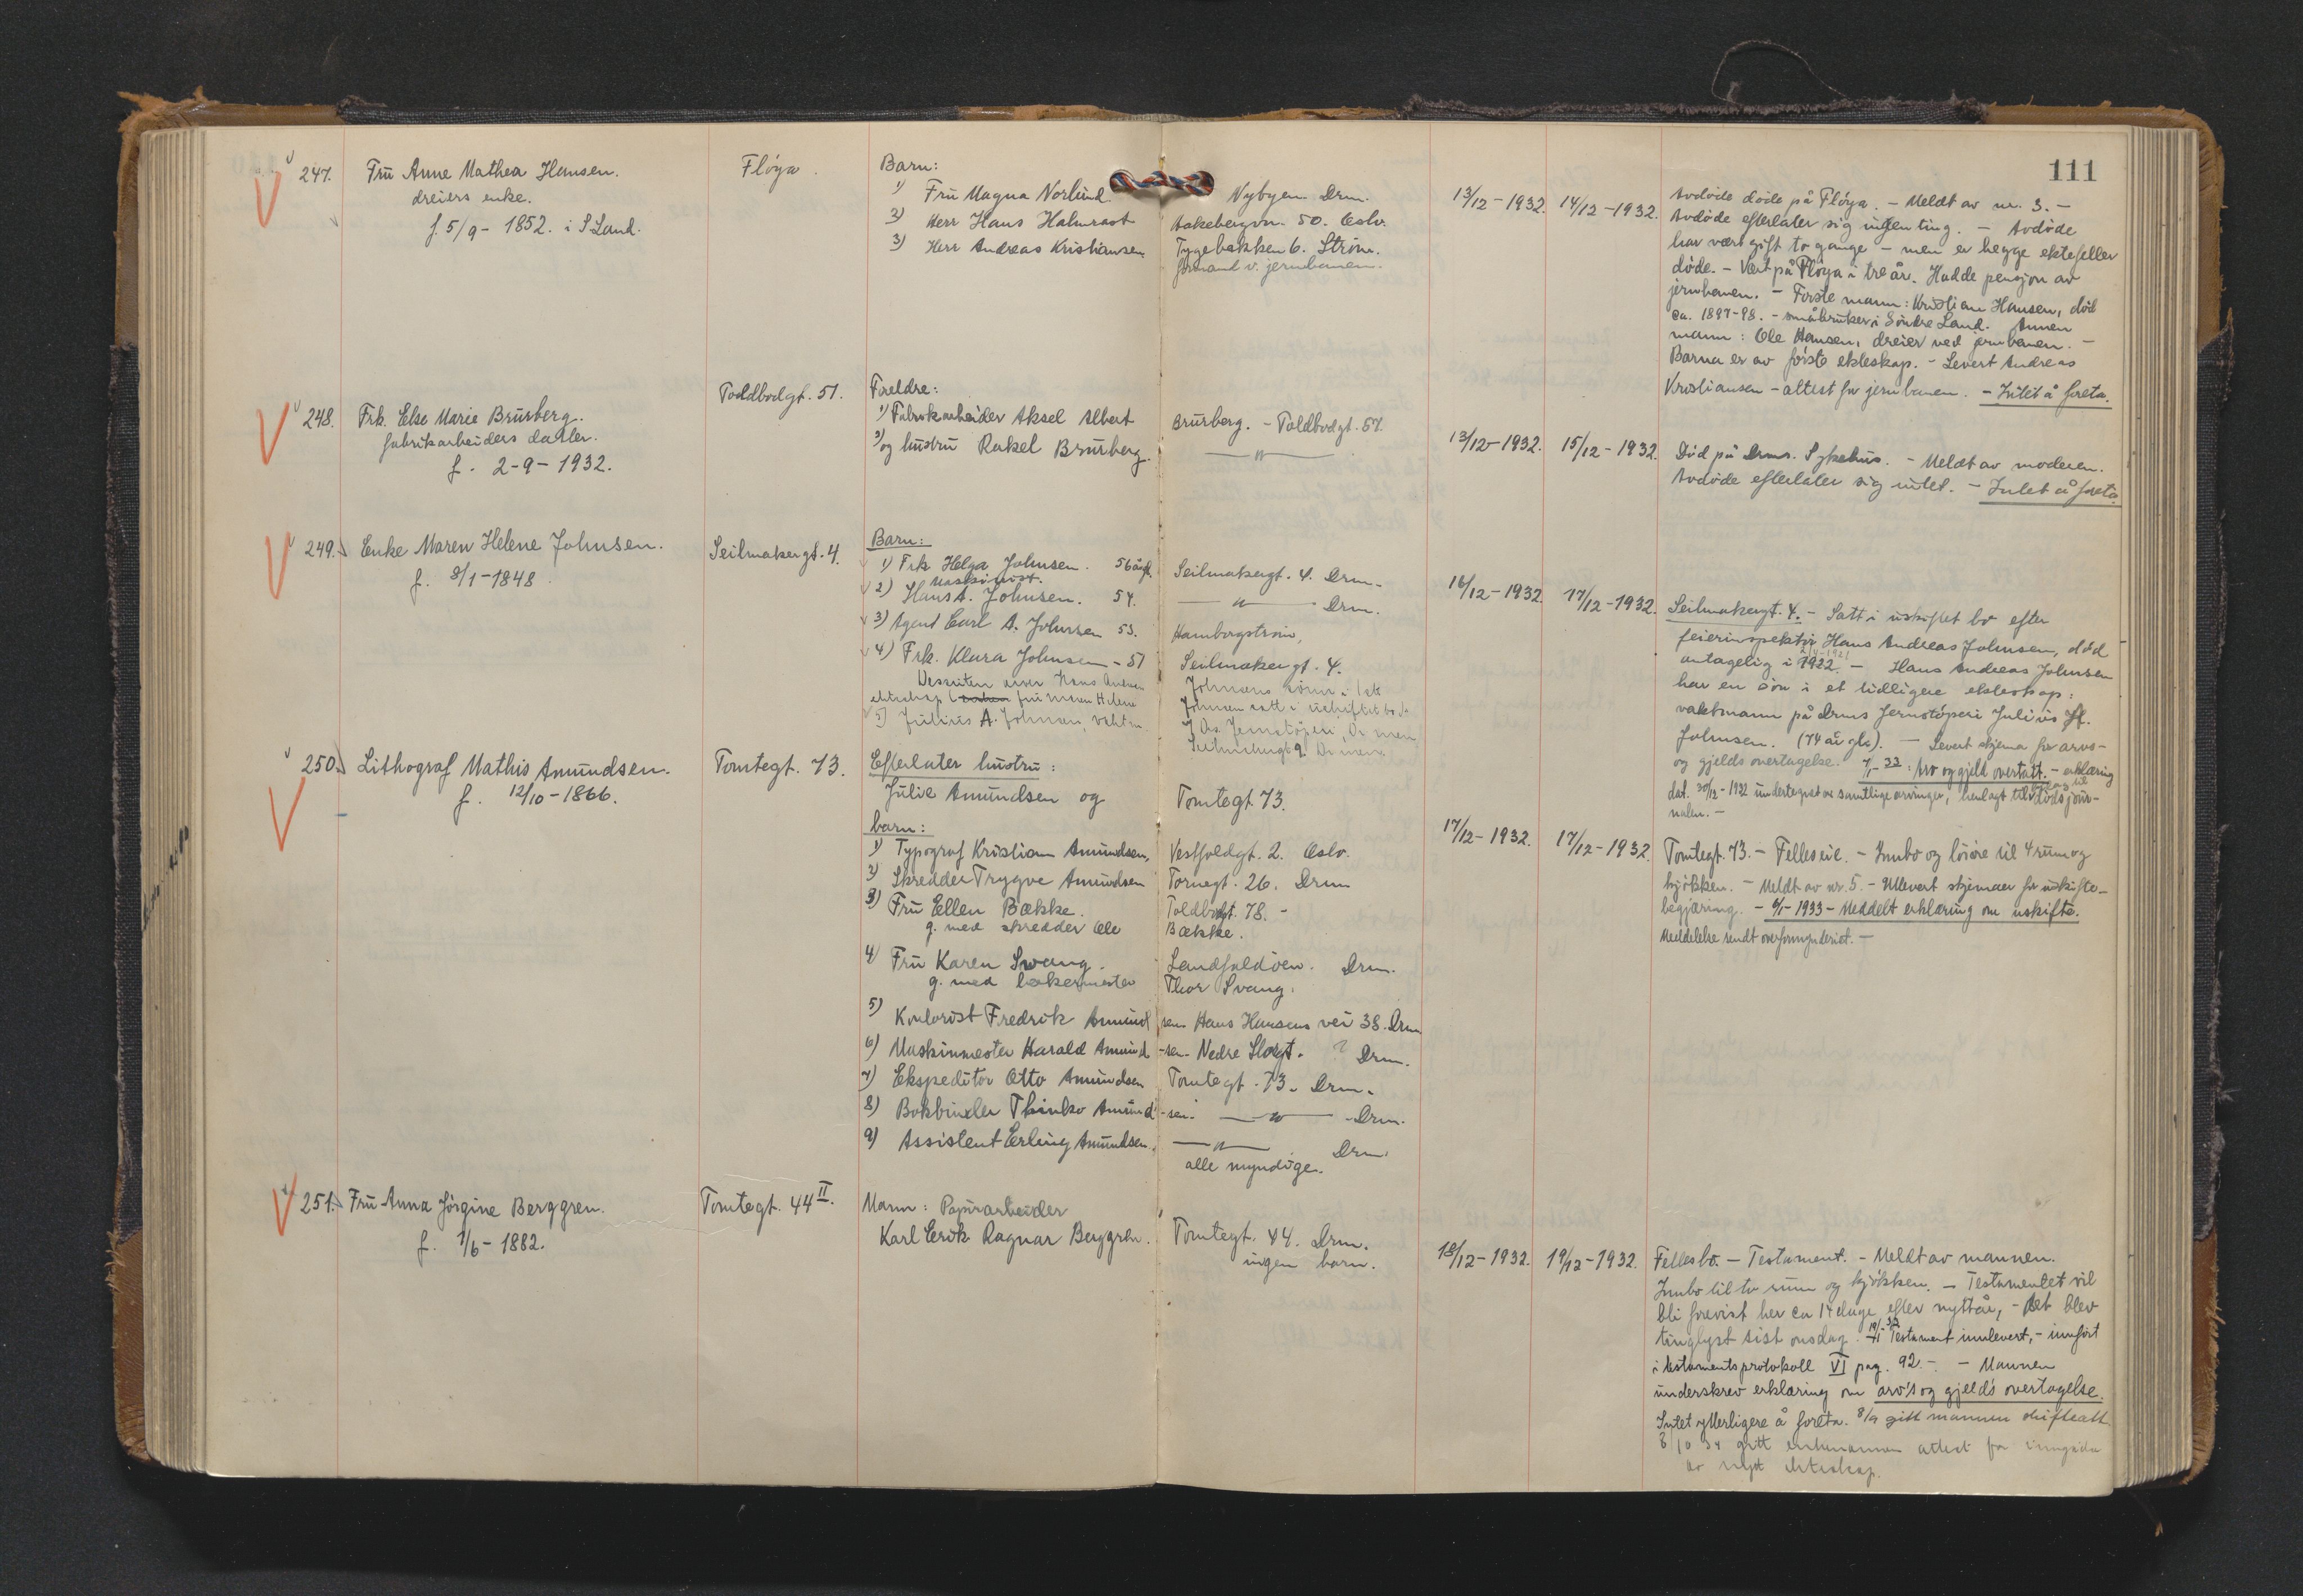 111
247. Fru Anne Mathea Hansen.
dreiers enke.
f. 5/9 - 1852. i S. Land.
Fløya.
Barn:
1) Fru Magna Norlund Nybyen Drm.
2) Herr Hans Halmrast Aakebergvn. 50. Oslo.
3) Herr Andreas Kristiansen, Tygebakken 6. Strøm.
formand v. jernbanen.
13/12 - 1932. 14/12 - 1932.
Avdøde døde på Fløya. - Meldt av nr. 3. -
Avdøde efterlater sig ingen ting. - Avdøde
har vært gift to gange - men er begge ektefeller
døde. - Vært på Fløya i tre år. Hadde pensjon av
jernbanen. - Første mann: Kristian Hansen, død
ca. 1897-98. - småbruker i Søndre Land. Annen
mann: Ole Hansen, dreier ved jernbanen. -
Barna er av første ekteskap. - Levert Andreas
Kristiansen - attest for jernbanen. - Intet å foreta.
248. Frk. Else Marie Brurberg.
fabrikarbeiders datter.
f. 2-9-1932.
Toldbodgt. 51.
Foreldre:
1) Fabrikarbeider Aksel Albert Brurberg. - Toldbodgt. 51.
2) og hustru Rakel Brurberg. — " —
13/12 - 1932. 15/12 - 1932.
Død på Drms. Sykehus. - Meldt av moderen.
Avdøde efterlater sig intet. - Intet å foreta.
249. Enke Maren Helene Johnsen.
f. 8/1 - 1848.
Seilmakergt. 4.
Barn:
1) Frk. Helga Johnsen. 56 år gl. Seilmakergt. 4. Drm.
Maskinist.
2) Hans A. Johnsen. 54. — " — Drm.
3) Agent Carl A. Johnsen 53. Hamborgstrøm,
4) Frk. Klara Johnsen - 51 Seilmakergt. 4.
Dessuten arver Hans Andreas Johnsens sønn i 1ste
ekteskap fru Maren Helene Johnsen satt i uskiftet bo
5) Julius A. Johnsen, vaktm.
16/12 - 1932. 17/12 - 1932.
Seilmakergt. 4. - Satt i uskiftet bo efter
feierinspektør Hans Andreas Johnsen, død
antagelig i 1922. - Hans Andreas Johnsen
har en søn i et tidligere ekteskap:
vaktmann på Drms Jernstøperi Julius A.
Johnsen. (74 år gl.). - Levert skjema for arvs-
og gjelds overtagelse. 7/1-33: Arv og gjeld overtatt. - erklæring
dat. 30/12-1932 undertegnet av samtlige arvinger, henlagt til dødsjour-
nalen. -
250. Lithograf Mathis Amundsen.
f. 12/10 - 1866.
Tomtegt. 73.
Efterlater hustru:
Julie Amundsen og Tomtegt 73.
barn:
1) Typograf Kristian Amundsen, Vestfoldgt. 2. Oslo.
2) Skredder Trygve Amundsen Tornegt. 26. Drm
3) Fru Ellen Bække. Toldbodgt. 78. -
g. med skredder Ole Bække.
4) Fru Karen Svang. Landfaldøen. Drm.
g. med bakermester Thor Svang.
5) Kontorist Fredrik Amundsen Hans Hansens vei 38. Drm
6) Maskinmester Harald Amund-sen. Nedre Storgt. ? Drm.
7) Ekspeditør Otto Amundsen Tomtegt. 73. Drm.
8) Bokbinder Amund-sen. — " — Drm.
9) Assistent Erling Amundsen. — " — Drm.
alle myndige.
17/12 - 1932. 17/12 - 1932.
Tomtegt. 73. - Felleseie. - Innbo og løsøre til 4 rum og
kjøkken. - Meldt av nr. 5. - Utlevert skjemaer for uskifte-
begjæring. - 6/1-1933 - Meddelt erklæring om uskifte.
Meddelelse sendt overformynderiet. -
251. Fru Anna Jørgine Berggren.
f. 1/6 - 1882.
Tomtegt. 44 II.
Mann: Papirarbeider
Karl Erik Ragnar Berggren. Tomtegt. 44. Drm.
ingen barn.
18/12 - 1932. 19/12 - 1932.
Fellesbo. - Testament. - Meldt av mannen.
Innbo til to rum og kjøkken. - Testamentet vil
bli forevist her ca 14 dage efter nyttår, - det blev
tinglyst sist onsdag. Testament innlevert, - innført
i testamentsprotokoll VI pag. 92. - - Mannen
underskrev erklæring om arv's og gjeld's overtagelse.
Intet ytterligere å foreta. 8/9 gitt mannen skifteatt.
8/10 34 gitt enkemannen attest for inngåelse
av nytt ekteskap.